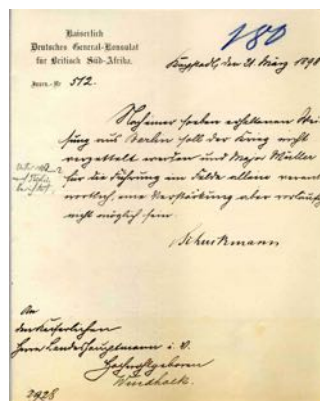 Kaiserlich
Deutsches General-Konsulat
für Britisch Süd-Afrika.
180
Kapstadt, den 21. März 189
Journ.-Nr 512.
Nach einer soeben erhaltenen Wei-
sung aus Berlin soll der Krieg nicht
verzettelt werden und Major Müller
für die Führung im Felde alleine verant-
wortlich, eine Verstärkung aber vorläufig
nicht möglich sein.
Schuckmann
An
den Kaiserlichen
Herrn Landeshauptmann i. V.
Hochwohlgeboren
Windhoek.
2928